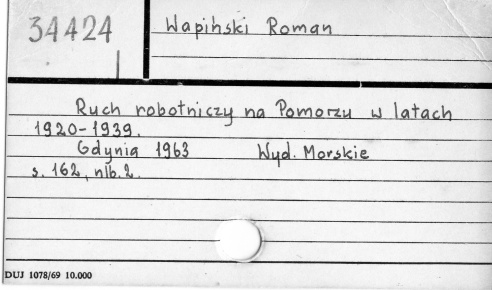 34424
Wapiński Roman
Ruch robotniczy na Pomorzu w latach
1920-1939.
Gdynia 1963 Wyd. Morskie
s. 162, nlb. 2.
DUJ 1078/69 10.000